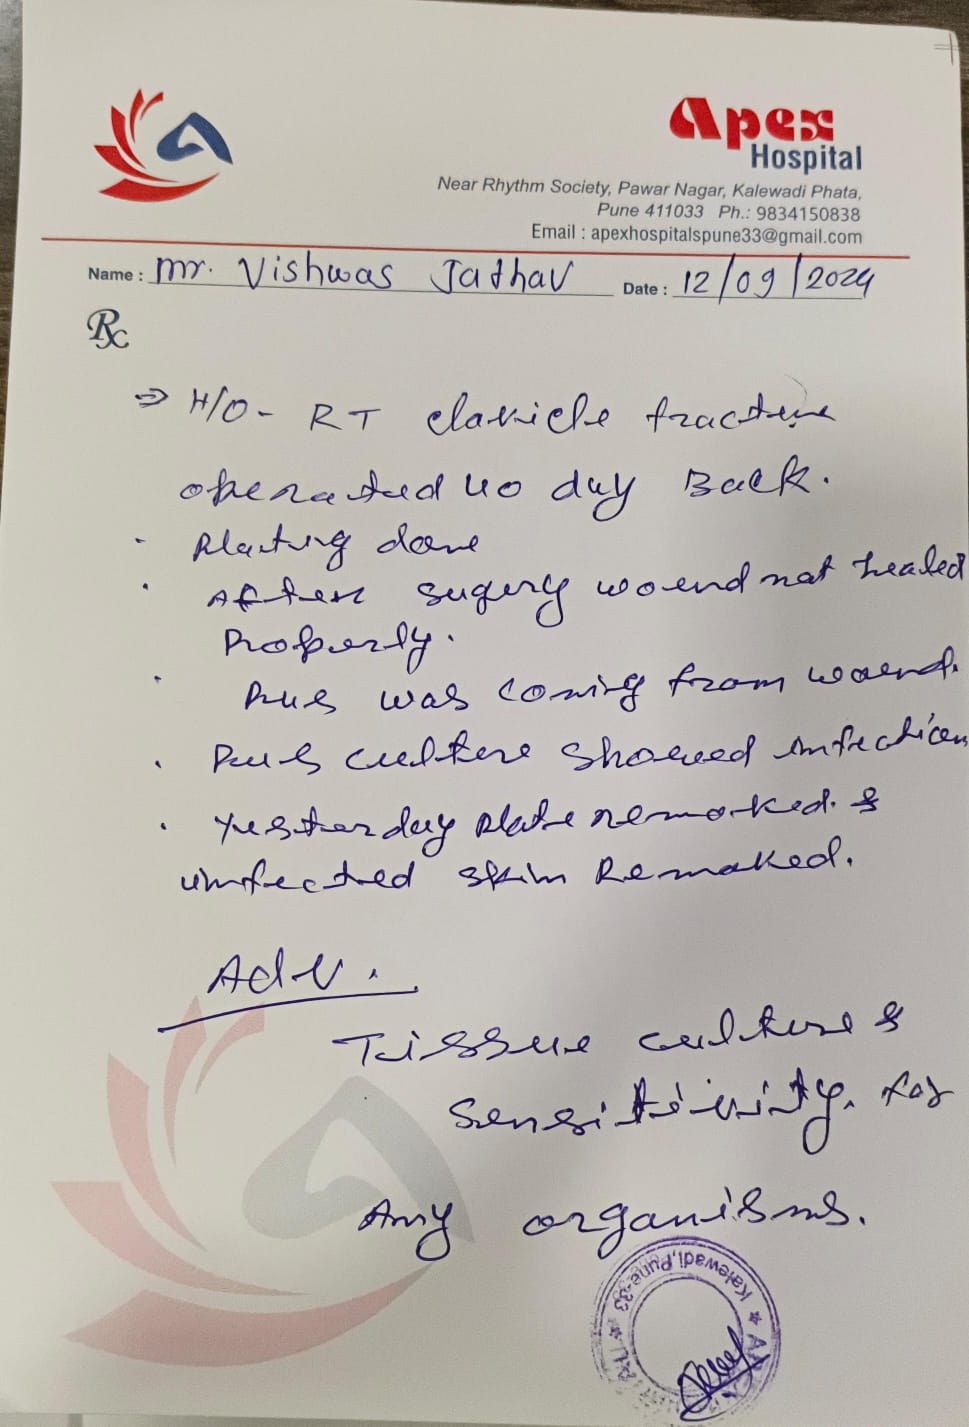 Apex
Hospital
Near Rhythm Society, Pawar Nagar, Kalewadi Phata,
Pune 411033 Ph.: 9834150838
Email : apexhospitalspune33@gmail.com
Name : Mr. Vishwas Jadhav Date : 12/09/2024
Rx
⇒ H/O - RT clavicle fracture
operated 40 day Back.
· Plating done
· After sugery wound not healed
Properly.
· Pus was coming from wound.
· Pus culture showed infection
· Yesterday plate removed. &
infected skin Removed.
Adv.
Tissue culture &
sensitivity. for
Any organisms.
Kalewadi, Pune-33